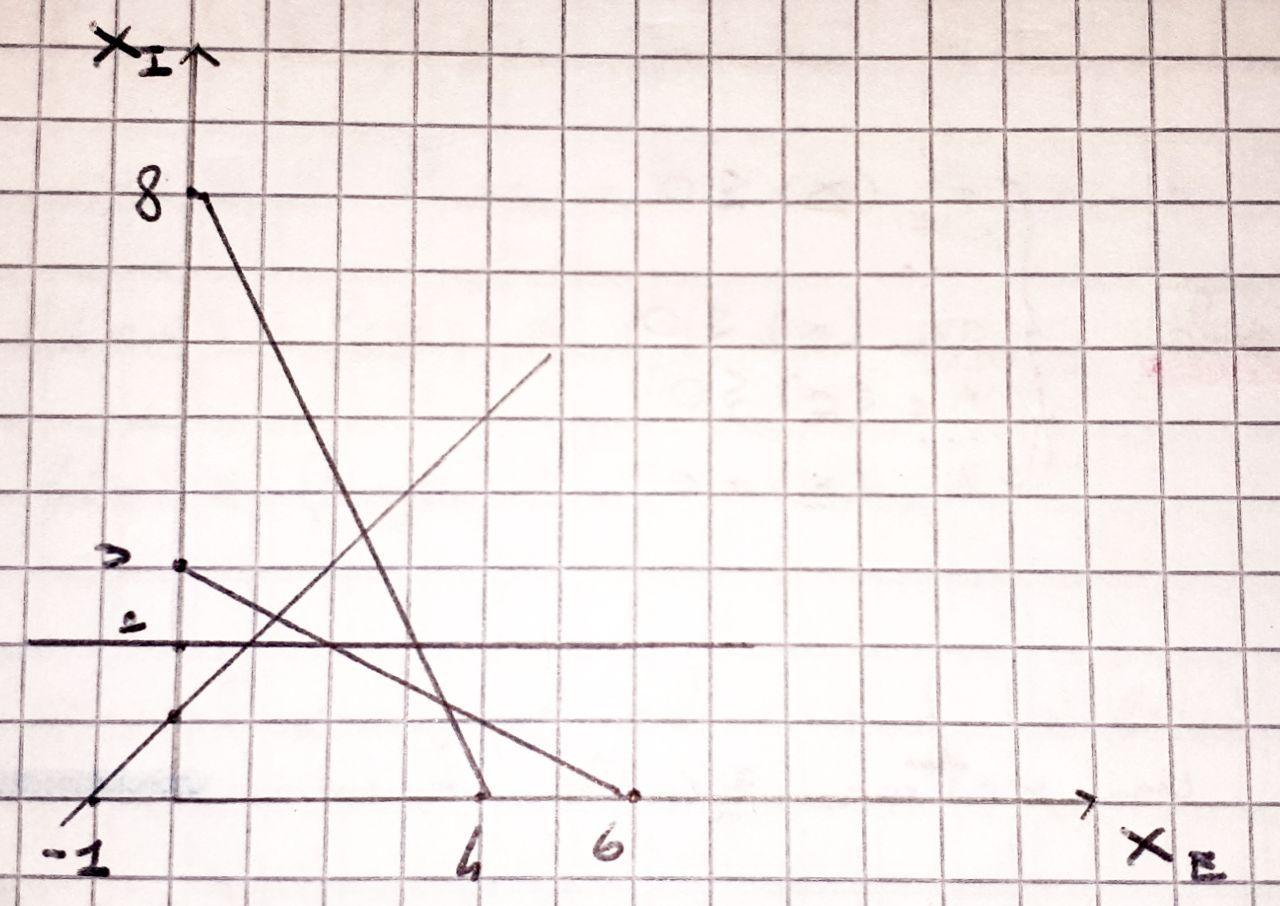 X_I
8
3
2
-1 4 6
X_E